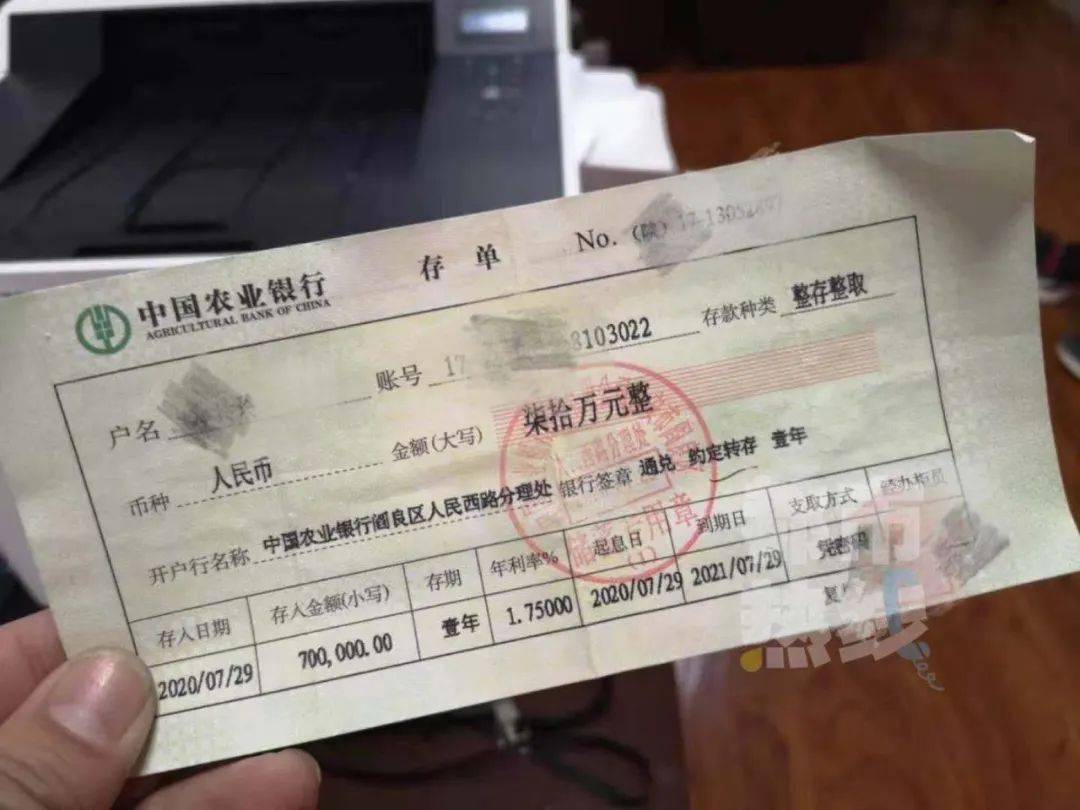 中国农业银行
AGRICULTURAL BANK OF CHINA
存单
No. (陕) 17-1305
户名
账号 17 8103022
存款种类 整存整取
币种 人民币
金额(大写) 柒拾万元整
开户行名称 中国农业银行阎良区人民西路分理处
银行签章 通兑 约定转存 壹年
存入日期 存入金额(小写) 存期 年利率% 起息日 到期日 支取方式 经办柜员
2020/07/29 700,000.00 壹年 1.75000 2020/07/29 2021/07/29 凭密码
复
用章
(1)
热线